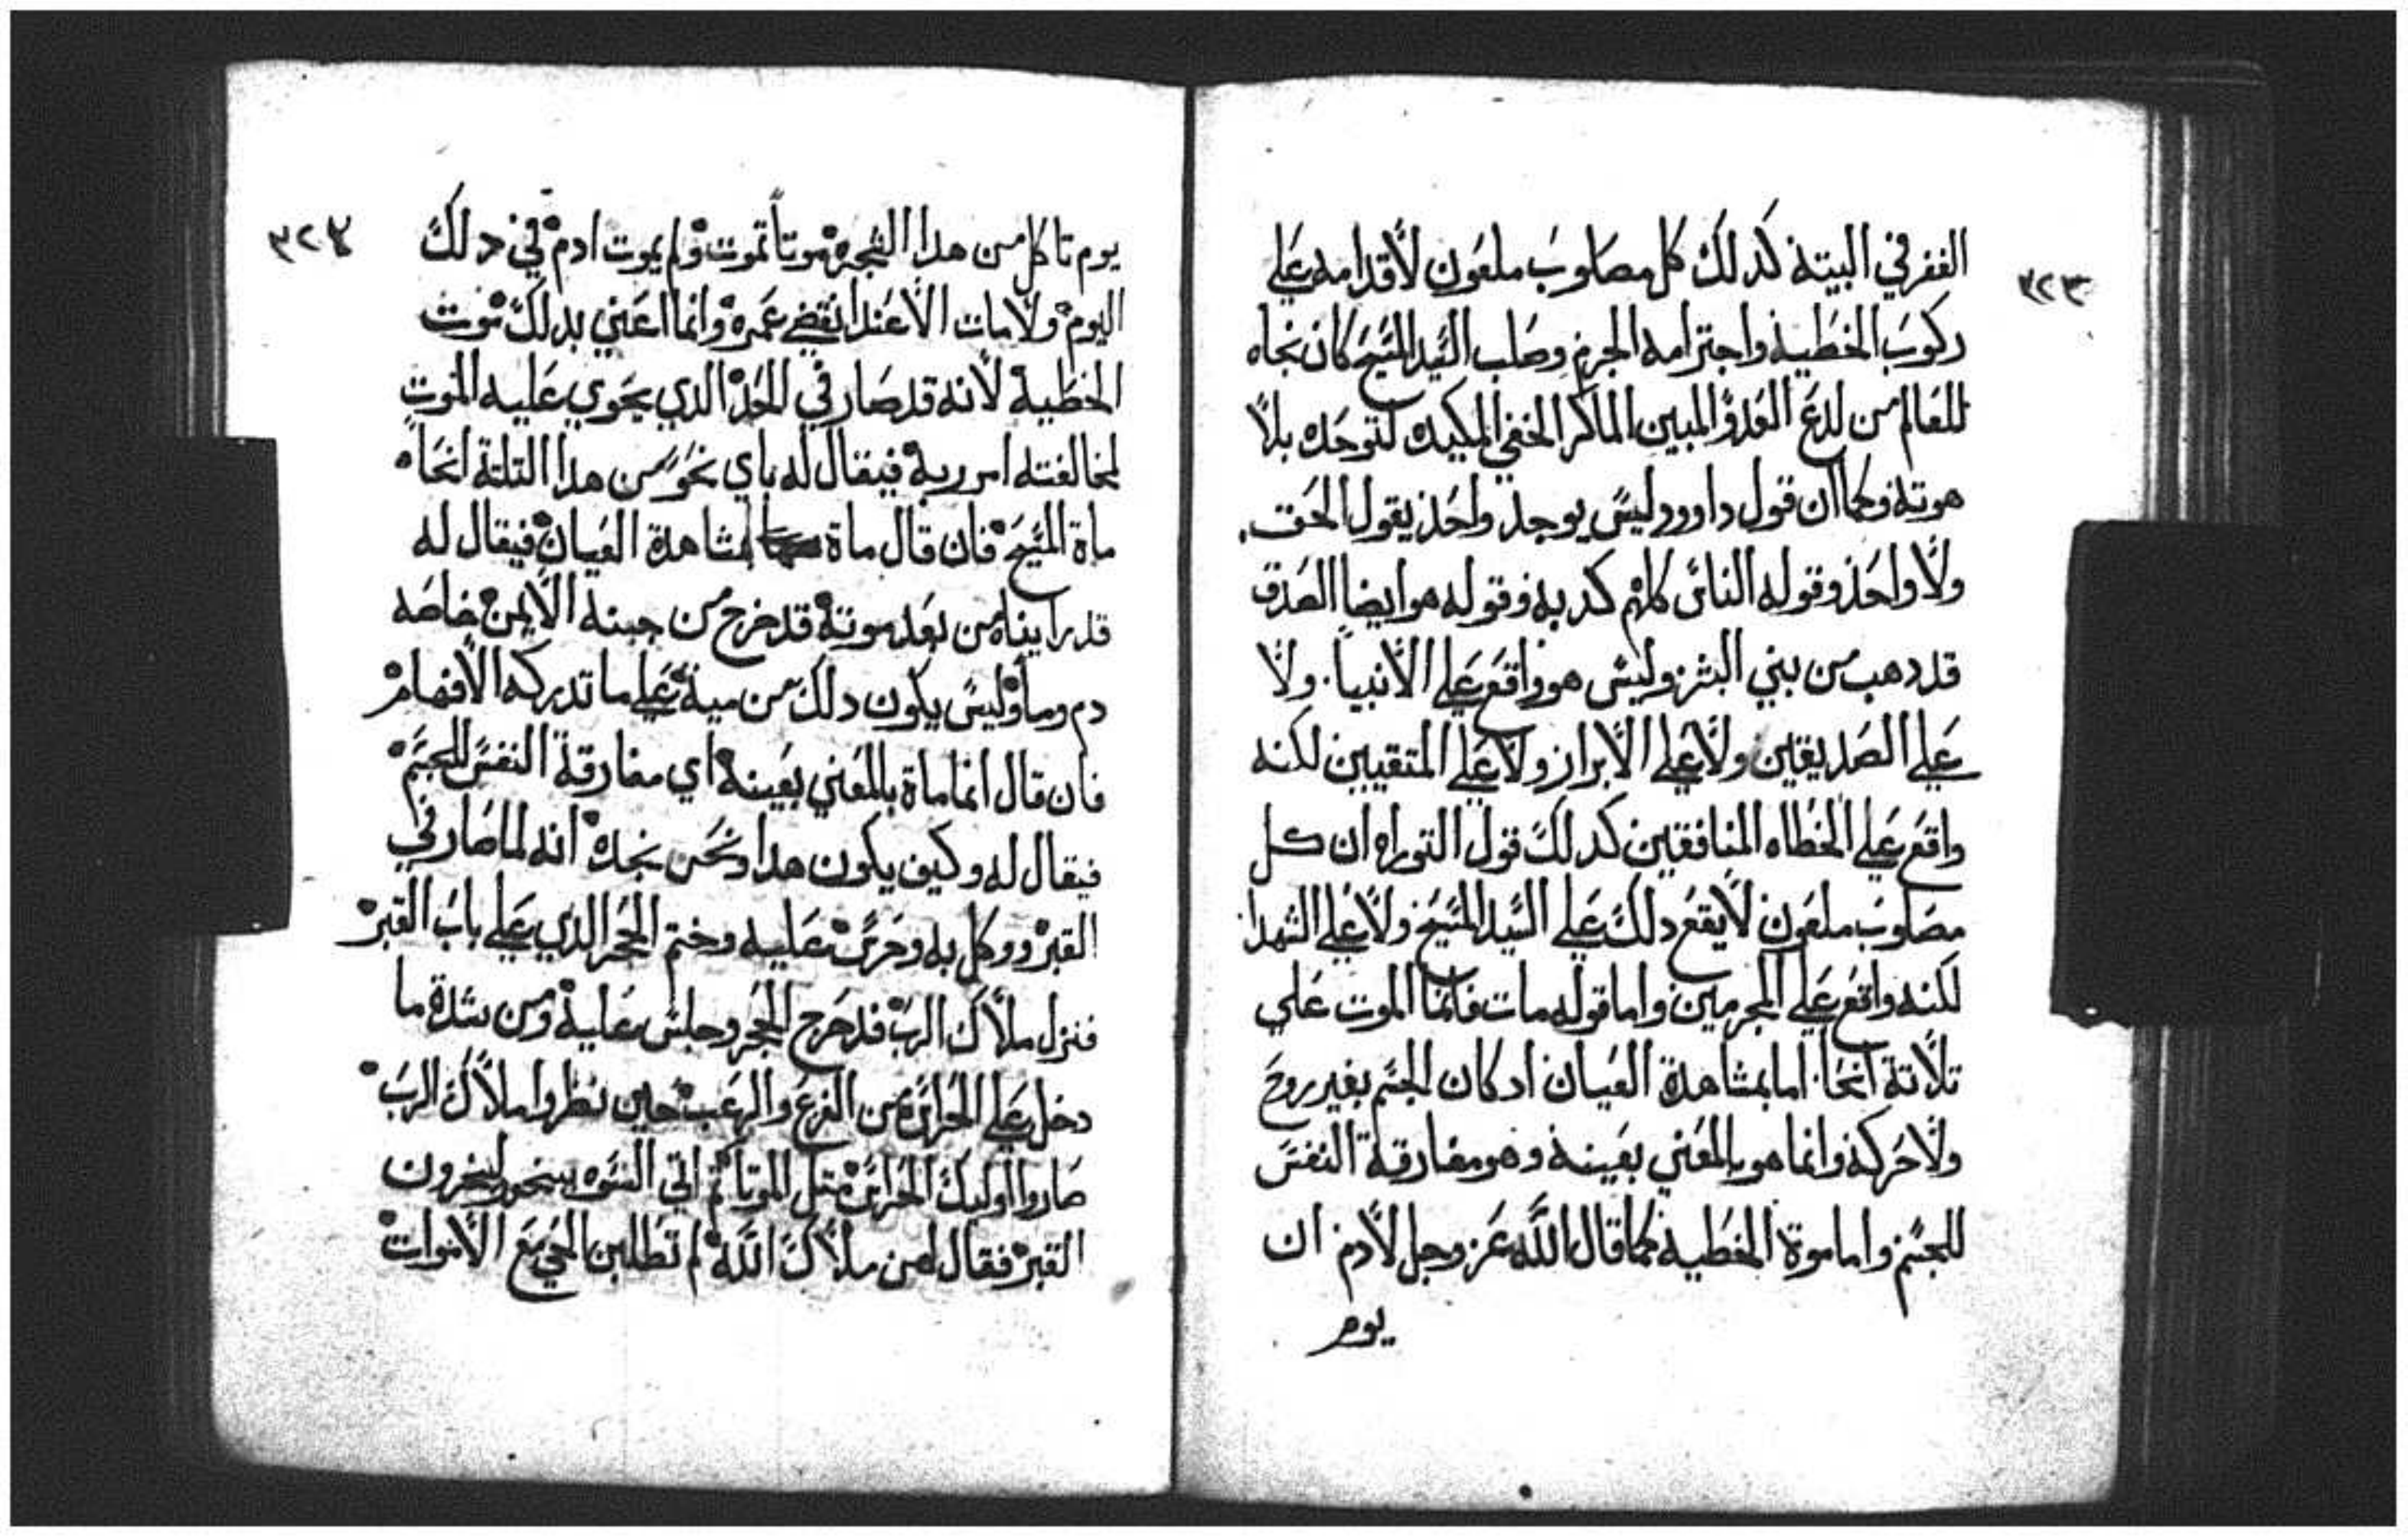 ٣٢٣
القفر في البيته كدلك كل مصلوب ملعون لاقدامه علي
ركوب الخطيه واجترامه الجرم وصلب السيد المسيح كان نجاه
للعالم من لدغ العدو المبين الماكر الخفي المكيده لتوحده بلا
هوته وكما ان قول داوود ليس يوجد واحد يقول الحق
ولا واحد وقوله الناس كلهم كدبه وقوله هو ايضا الصدق
قد دهب من بني البشر وليس هو واقع علي الانبيا ولا
علي الصديقين ولا علي الابرار ولا علي المتقيين لكنه
واقع علي الخطاه المنافقين كدلك قول التوراه ان كل
مصلوب ملعون لا يقع دلك علي السيد المسيح ولا علي الشهدا
لكنه واقع علي المجرمين واما قوله مات فانما الموت علي
تلاتة انحا اما بمشاهدة العيان اد كان الجسم بغير روح
ولا حركه وانما هو بالمعني بعينه وهو مفارقة النفس
للجسم واما موتة الخطيه كما قال الله عز وجل لادم ان
يوم
٣٢٤
يوم تاكل من هدا الشجره موتاً تموت ولم يموت ادم في دلك
اليوم ولا مات الا عند انقضي عمره وانما اعني بدلك موت
الخطية لانه قد صار في الحد الدي يحوي عليه الموت
لمخالفته امر ربه فيقال له باي نحو من هدا التلتة انحاه
ماة المسيح فان قال ماة لمشاهدة العيان فيقال له
قد رايناه من بعد موته قد خرج من جبنه الايمن خاصه
دم وما وليس يكون دلك من مية علي ما تدركه الافهام
فان قال انما ماة بالمعني بعينه اي مفارقة النفس للجسم
فيقال له وكيف يكون هدا ونحن نجده انه لما صار في
القبر ووكل به وحرس عليه وختم الحجر الدي علي باب القبر
فنزل ملاك الرب فدحرج الحجر وجلس عليه ومن شدة ما
دخل علي الحراس من الفزع والرعب حين نظروا ملاك الرب
صاروا اوليك الحراس متل الموتا تم اتي النسوه ينحو
القبر فقال لهن ملاك الله لم تطلبن الحي مع الاموات